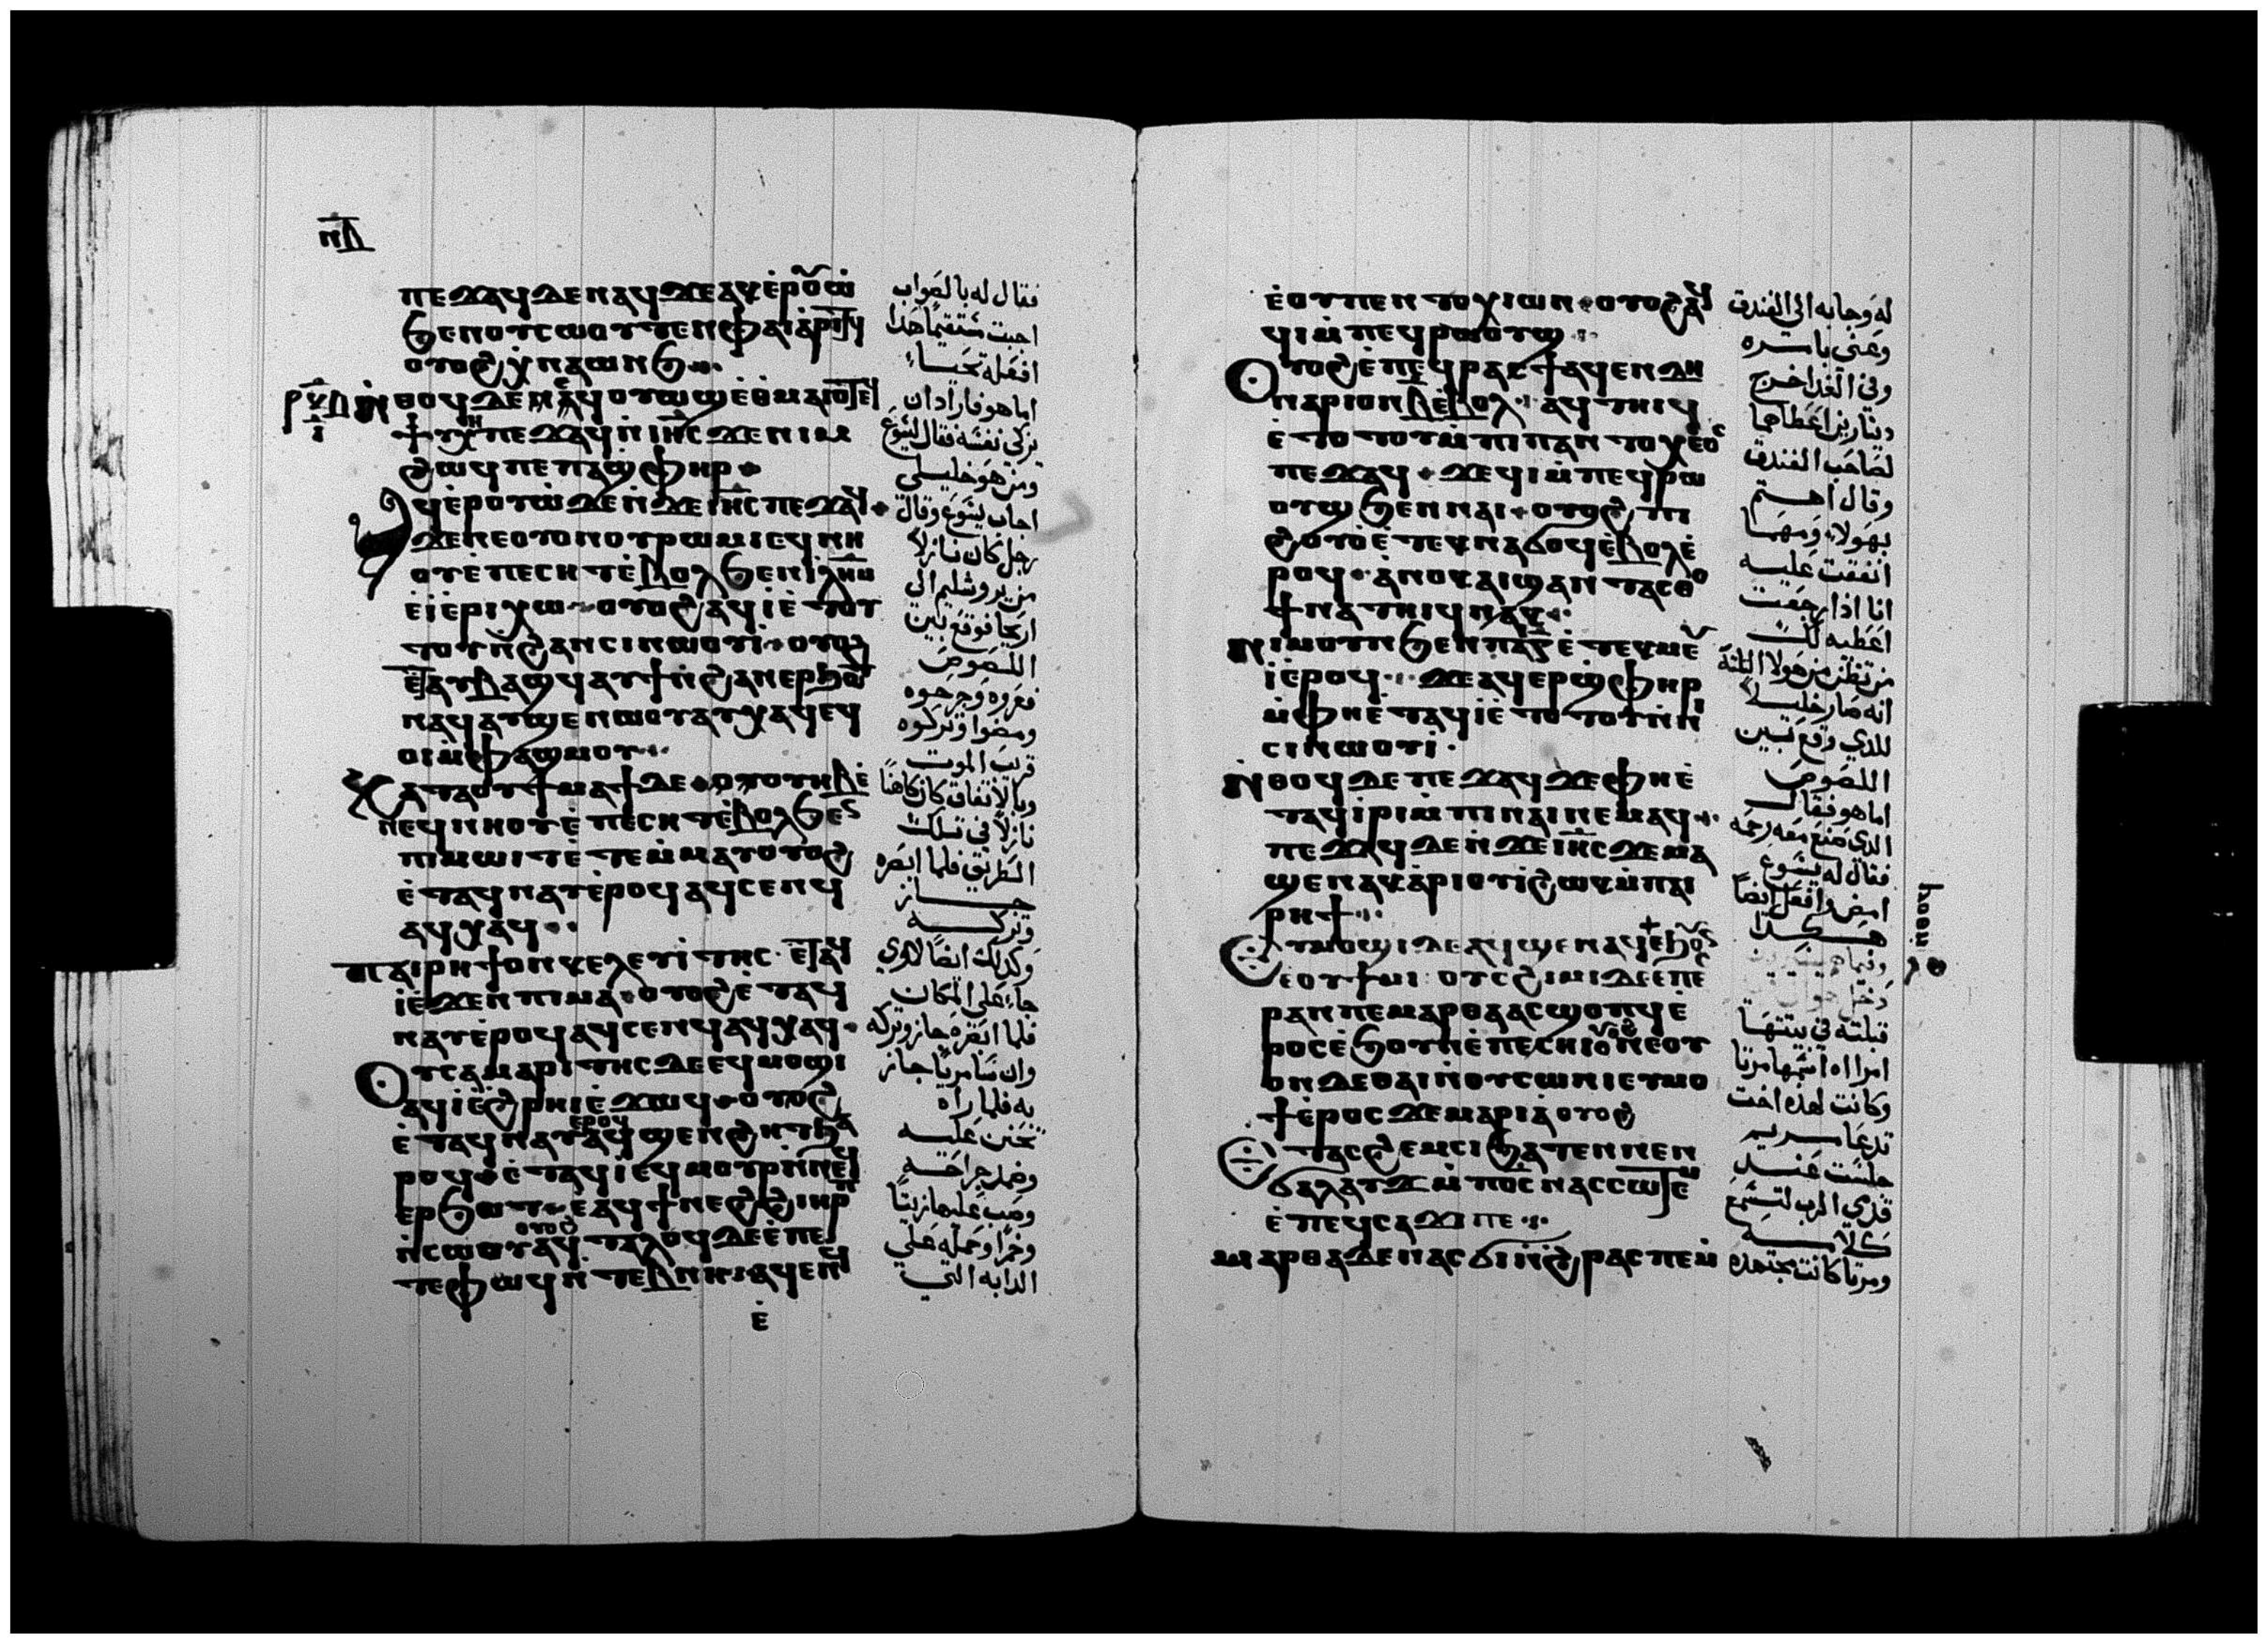 ⲛⲇ̅
ⲡⲉϫⲁϥ ⲇⲉ ⲛⲁϥ ϫⲉ ⲁⲕⲉ̇ⲣⲟⲩⲱ̇
ϧⲉⲛ ⲟⲩⲥⲱⲟⲩⲧⲉⲛ ⲫⲁⲓ ⲁ̇ⲣⲓⲧϥ
ⲟⲩⲟϩ ⲭ̇ⲛⲁⲱⲛϧ
ⲛ̇ⲑⲟϥ ⲇⲉ ⲛⲁϥⲟⲩⲱϣ ⲉ̇ⲑⲙⲁⲓⲟϥ
ⲡⲉϫⲁϥ ⲛ̇ⲓⲏ̅ⲥ ϫⲉ ⲛⲓⲙ
ϩⲱϥ ⲡⲉ ⲡⲁϣⲫⲏⲣ
ⲁϥⲉ̇ⲣⲟⲩⲱ̇ ⲇⲉ ⲛ̇ϫⲉ ⲓⲏ̅ⲥ ⲡⲉϫⲁϥ
ϫⲉ ⲛⲉ ⲟⲩⲟⲛ ⲟⲩⲣⲱⲙⲓ ⲉϥⲛⲏ
ⲟⲩ ⲉ̇ⲡⲉⲥⲏⲧ ⲉ̇ⲃⲟⲗ ϧⲉⲛ ⲓⲗ̅ⲏⲙ
ⲉ̇ⲓⲉ̇ⲣⲓⲭⲱ ⲟⲩⲟϩ ⲁϥⲓ̇ ⲉ̇ⲧⲟⲧ
ⲧⲟⲩ ⲛ̇ϩⲁⲛⲥⲓⲛⲱⲟⲩⲓ̇ ⲟⲩⲟϩ
ⲉⲧⲁⲩⲃⲁϣϥ ⲁⲩϯ ⲛ̇ϩⲁⲛⲉⲣϧⲟⲧ
ⲛⲁϥ ⲁⲩϣⲉⲛⲱⲟⲩ ⲁⲩⲭⲁϥ ⲉϥ
ⲟⲓ ⲙ̇ⲫⲁϣⲙⲟⲩ
ⲕⲁⲧⲁ ⲟⲩϯⲙⲁϯ ⲇⲉ ⲟⲩⲟⲩⲏⲃ ⲉ̇
ⲛⲉϥⲛⲏⲟⲩ ⲉ̇ⲡⲉⲥⲏⲧ ⲉ̇ⲃⲟⲗ ϧⲉⲛ
ⲡⲓⲙⲱⲓⲧ ⲉ̇ⲧⲉⲙ̇ⲙⲁⲩ ⲟⲩⲟϩ
ⲉ̇ⲧⲁϥⲛⲁⲩ ⲉ̇ⲣⲟϥ ⲁϥⲥⲉⲛϥ
ⲁϥⲭⲁϥ
ⲡⲁⲓⲣⲏϯ ⲟⲛ ⲕⲉⲗⲉⲩⲓ̇ⲧⲏⲥ ⲉⲧⲁϥ
ⲓ̇ ⲉ̇ϫⲉⲛ ⲡⲓⲙⲁ ⲟⲩⲟϩ ⲉ̇ⲧⲁϥ
ⲛⲁⲩ ⲉ̇ⲣⲟϥ ⲁϥⲥⲉⲛϥ ⲁϥⲭⲁϥ
ⲟⲩⲥⲁⲙⲁⲣⲓⲧⲏⲥ ⲇⲉ ⲉϥⲙⲟϣⲓ
ⲁϥⲓ̇ ⲉ̇ϩⲣⲏⲓ ⲉ̇ϫⲱϥ ⲟⲩⲟϩ
ⲉ̇ⲧⲁϥⲛⲁⲩ ⲉⲣⲟϥ ⲁϥϣⲉⲛϩⲏⲧ ϧⲁ
ⲣⲟϥ ⲉ̇ⲧⲁϥⲓ̇ ⲉϥⲙⲟⲩⲣ ⲛ̇ⲛⲉϥ
ⲉⲣϧⲟⲧ ⲉ̇ⲁϥϯ ⲛⲉϩ ϩⲓ ⲏⲣⲡ
ⲛ̇ⲥⲱⲟⲩ ⲟⲩⲟϩ ⲁϥⲧⲁⲗⲟϥ ⲇⲉ ⲉ̇ⲡⲉ
ⲧⲉⲫⲱϥ ⲛ̇ⲧⲉⲃⲛⲏ ⲁϥⲉⲛϥ
ⲉ̇
فقال له بالصواب
اجبت مستقيما هذا
افعله تحيا
اما هو فاراد ان
يزكي نفسه فقال ليسوع
ومن هو خليلي
اجاب يسوع وقال
رجل كان نازلا
من يروشليم الى
اريحا فوقع بين
اللصوص
فعروه وجرحوه
ومضوا وتركوه
قريب الموت
وبالاتفاق كان كاهنا
نازلا في تلك
الطريق فلما ابصره
جاز
وتركه
وكذلك ايضا لاوي
جاء على المكان
فلما ابصره جاز وتركه
وان سامريا جاز
به فلما راه
تحنن عليه
وضمد جراحته
وصب عليها زيتا
وخمرا وحمله على
الدابه التي
ⲉ̇ⲟⲩⲡⲉⲛⲧⲟⲭⲓⲱⲛ ⲟⲩⲟϩ ⲁϥ
ϥⲓ ⲙ̇ⲡⲉϥⲣⲱⲟⲩϣ
ⲟⲩⲟϩ ⲉ̇ⲡⲉϥⲣⲁⲥϯ ⲁϥⲉⲛ ⲇⲏ
ⲛⲁⲣⲓⲟⲛ ⲃ̅ ⲉ̇ⲃⲟⲗ ⲁϥⲧⲏⲓϥ
ⲉ̇ⲧⲟⲧϥ ⲙ̇ⲡⲓⲡⲁⲛⲧⲟⲭⲉⲟⲥ
ⲡⲉϫⲁϥ ϫⲉ ϥⲓ ⲙ̇ⲡⲉϥⲣⲱ
ⲟⲩϣ ϧⲉⲛ ⲛⲁⲓ ⲟⲩⲟϩ ⲡⲓ
ϩⲟⲩⲟ̇ ⲉ̇ⲧⲉⲕⲛⲁϭⲟϥ ⲉ̇ⲃⲟⲗ ⲉ̇
ⲣⲟϥ ⲁ̇ⲛⲟⲕ ⲁⲓϣⲁⲛⲧⲁⲥⲑⲟ
ϯⲛⲁⲧⲏⲓϥ ⲛⲁⲕ
ⲛⲓⲙ ⲟⲩⲛ ϧⲉⲛ ⲡⲁⲓ ⲅ̅ ⲉ̇ⲧⲉⲕⲙⲉⲩ
ⲓ̇ ⲉ̇ⲣⲟϥ ϫⲉ ⲁϥⲉⲣϣⲫⲏⲣ
ⲙ̇ⲫⲏ ⲉ̇ⲧⲁϥⲓ̇ ⲉ̇ⲧⲟⲧⲟⲩ ⲛ̇ⲛⲓ
ⲥⲓⲛⲱⲟⲩⲓ̇
ⲛ̇ⲑⲟϥ ⲇⲉ ⲡⲉϫⲁϥ ϫⲉ ⲫⲏ ⲉ̇
ⲧⲁϥⲓ̇ⲣⲓ ⲙ̇ⲡⲓⲛⲁⲓ ⲛⲉⲙⲁϥ
ⲡⲉϫⲁϥ ⲇⲉ ⲛ̇ϫⲉ ⲓⲏ̅ⲥ ϫⲉ ⲙⲁ
ϣⲉⲛⲁⲕ ⲁ̇ⲣⲓⲟⲩⲓ̇ ϩⲱⲕ ⲙ̇ⲡⲁⲓ
ⲣⲏϯ
ⲉⲩⲙⲟϣⲓ ⲇⲉ ⲁϥϣⲉⲛⲁϥ ⲉ̇ϧⲟⲩⲛ
ⲉⲟⲩϯⲙⲓ ⲟⲩⲥϩⲓⲙⲓ ⲇⲉ ⲉⲡⲉⲥ
ⲣⲁⲛ ⲡⲉ ⲙⲁⲣⲑⲁ ⲁⲥϣⲟⲡϥ ⲉ̇
ⲣⲟⲥ ⲉ̇ϧⲟⲩⲛ ⲉ̇ⲡⲉⲥⲏⲓ ⲟⲩⲟϩ ⲛⲉ ⲟⲩ
ⲟⲛ ⲇⲉ ⲑⲁⲓ ⲛ̇ⲟⲩⲥⲱⲛⲓ ⲉⲩⲙⲟⲩ
ϯ ⲉ̇ⲣⲟⲥ ϫⲉ ⲙⲁⲣⲓⲁ̀ ⲟⲩⲟϩ
ⲉⲧⲁⲥϩⲉⲙⲥⲓ ϧⲁⲧⲉⲛ ⲛⲉⲛ
ϭⲁⲗⲁⲩϫ ⲙ̇ⲡⲟ̅ⲥ ⲛⲁⲥⲥⲱⲧⲉⲙ
ⲉ̇ⲡⲉϥⲥⲁϫⲓ ⲡⲉ
ⲙⲁⲣⲑⲁ ⲇⲉ ⲛⲁⲥϭⲓ ⲛ̇ϩⲣⲁⲥ ⲡⲉ
له وجا به الى الفندق
وعني بامره
وفي الغد اخرج
دينارين اعطاهما
لصاحب الفندق
وقال اهتم
بهولاء ومهما
انفقت عليه
انا اذا رجعت
اعطيه لك
من تظن من هولا الثلثة
انه صار خليلا
للذي وقع بين
اللصوص
اما هو فقال
الذي صنع معه رحمه
فقال له يسوع
امض وافعل ايضا
هكذا
قبلته في بيتها
امراه اسمها مرتا
وكانت لهذه اخت
تدعا مريم
جلست عند
قدمي الرب لتسمع
كلامه
ومرتا كانت مجتهده